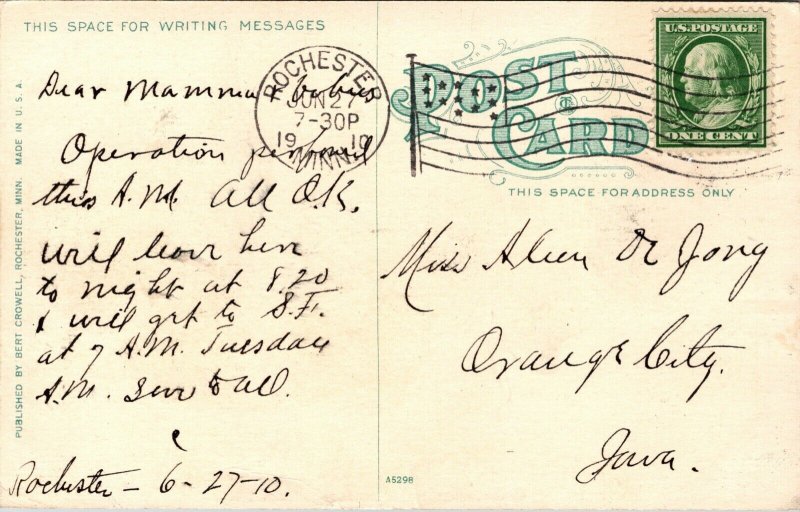 THIS SPACE FOR WRITING MESSAGES
Dear Mamma
Operation
this A.M. All O.K.
will leave here
to night at 8.20
& will get to S.F.
at 7 A.M. Tuesday
A.M. Love to All.
Rochester – 6-27-10.
PUBLISHED BY BERT CROWELL, ROCHESTER, MINN. MADE IN U.S.A.
ROCHESTER
JUN 27
7-30P
1910
MINN.
POST
CARD
U.S. POSTAGE
ONE CENT
THIS SPACE FOR ADDRESS ONLY
Miss De Jong
Orange City.
Iowa.
A5298